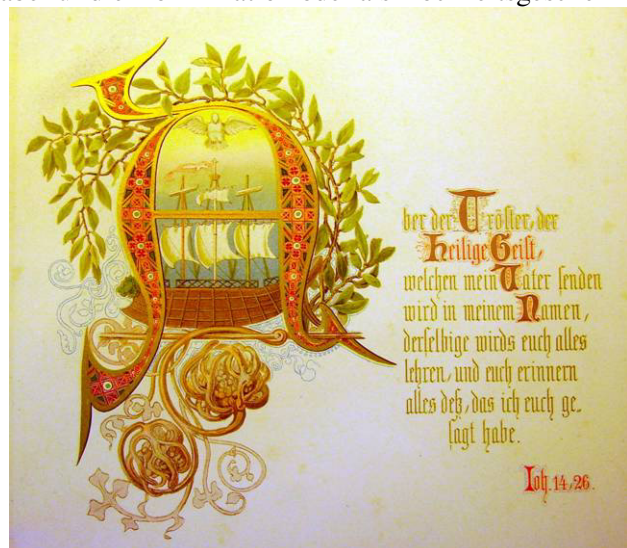 Aber der Tröster, der
Heilige Geist,
welchen mein Vater senden
wird in meinem Namen,
derselbige wirds euch alles
lehren, und euch erinnern
alles deß, das ich euch ge-
sagt habe.
Joh. 14, 26.